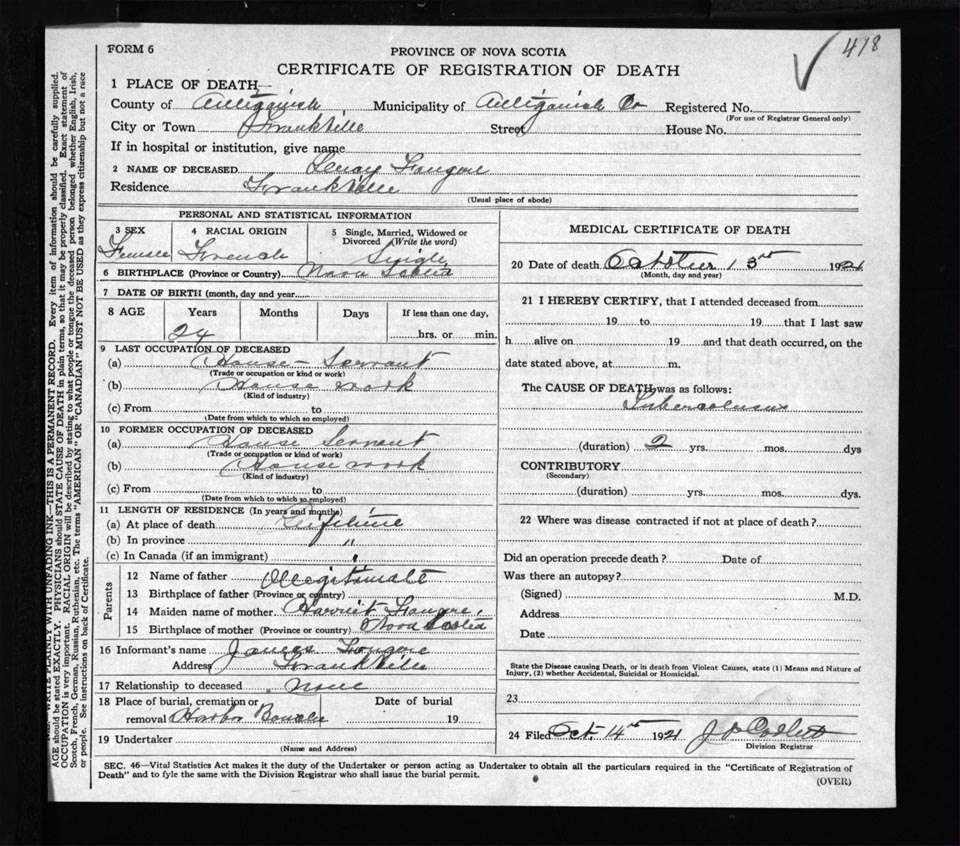 418
FORM 6
PROVINCE OF NOVA SCOTIA
CERTIFICATE OF REGISTRATION OF DEATH
1 PLACE OF DEATH—
County of Antigonish Municipality of Antigonish Co Registered No.
(For use of Registrar General only)
City or Town Frankville Street House No.
If in hospital or institution, give name
2 NAME OF DECEASED Fougere
Residence Frankville
(Usual place of abode)
PERSONAL AND STATISTICAL INFORMATION
3 SEX 4 RACIAL ORIGIN 5 Single, Married, Widowed or Divorced (Write the word)
Female French Single
6 BIRTHPLACE (Province or Country) Nova Scotia
7 DATE OF BIRTH (month, day and year
8 AGE Years Months Days If less than one day,
24 hrs. or min.
9 LAST OCCUPATION OF DECEASED
(a) House Servant
(Trade or occupation or kind or work)
(b) House work
(Kind of industry)
(c) From to
(Date from which to which so employed)
10 FORMER OCCUPATION OF DECEASED
(a) House Servant
(Trade or occupation or kind of work)
(b) House work
(Kind of industry)
(c) From to
(Date from which to which so employed)
11 LENGTH OF RESIDENCE (In years and months)
(a) At place of death Life time
(b) In province "
(c) In Canada (if an immigrant) "
Parents
12 Name of father Illegitimate
13 Birthplace of father (Province or country)
14 Maiden name of mother Harriet Fougere
15 Birthplace of mother (Province or country) Nova Scotia
16 Informant's name James Fougere
Address Frankville
17 Relationship to deceased None
18 Place of burial, cremation or removal Harbor Bouche Date of burial 19
19 Undertaker
(Name and Address)
MEDICAL CERTIFICATE OF DEATH
20 Date of death October 13 1921
(Month, day and year)
21 I HEREBY CERTIFY, that I attended deceased from
19 to 19 that I last saw
h alive on 19 and that death occurred, on the
date stated above, at m.
The CAUSE OF DEATH was as follows:
Tuberculosis
(duration) 2 yrs. mos. dys
CONTRIBUTORY
(Secondary)
(duration) yrs. mos. dys.
22 Where was disease contracted if not at place of death?
Did an operation precede death? Date of
Was there an autopsy?
(Signed) M.D.
Address
Date
State the Disease causing Death, or in death from Violent Causes, state (1) Means and Nature of Injury, (2) whether Accidental, Suicidal or Homicidal.
23
24 Filed Oct. 14th 1921
Division Registrar
SEC. 46—Vital Statistics Act makes it the duty of the Undertaker or person acting as Undertaker to obtain all the particulars required in the "Certificate of Registration of
Death" and to fyle the same with the Division Registrar who shall issue the burial permit.
(OVER)
WRITE PLAINLY WITH UNFADING INK—THIS IS A PERMANENT RECORD. Every item of information should be carefully supplied.
AGE should be stated EXACTLY. PHYSICIANS should STATE CAUSE OF DEATH in plain terms, so that it may be properly classified. Exact statement of
OCCUPATION is very important. RACIAL ORIGIN will be described by stating to what people or tongue the deceased person belonged whether English, Irish,
Scotch, French, German, Russian, Ruthenian, etc. The terms "AMERICAN" OR "CANADIAN" MUST NOT BE USED as they express citizenship but not a race
or people. See instructions on back of Certificate.